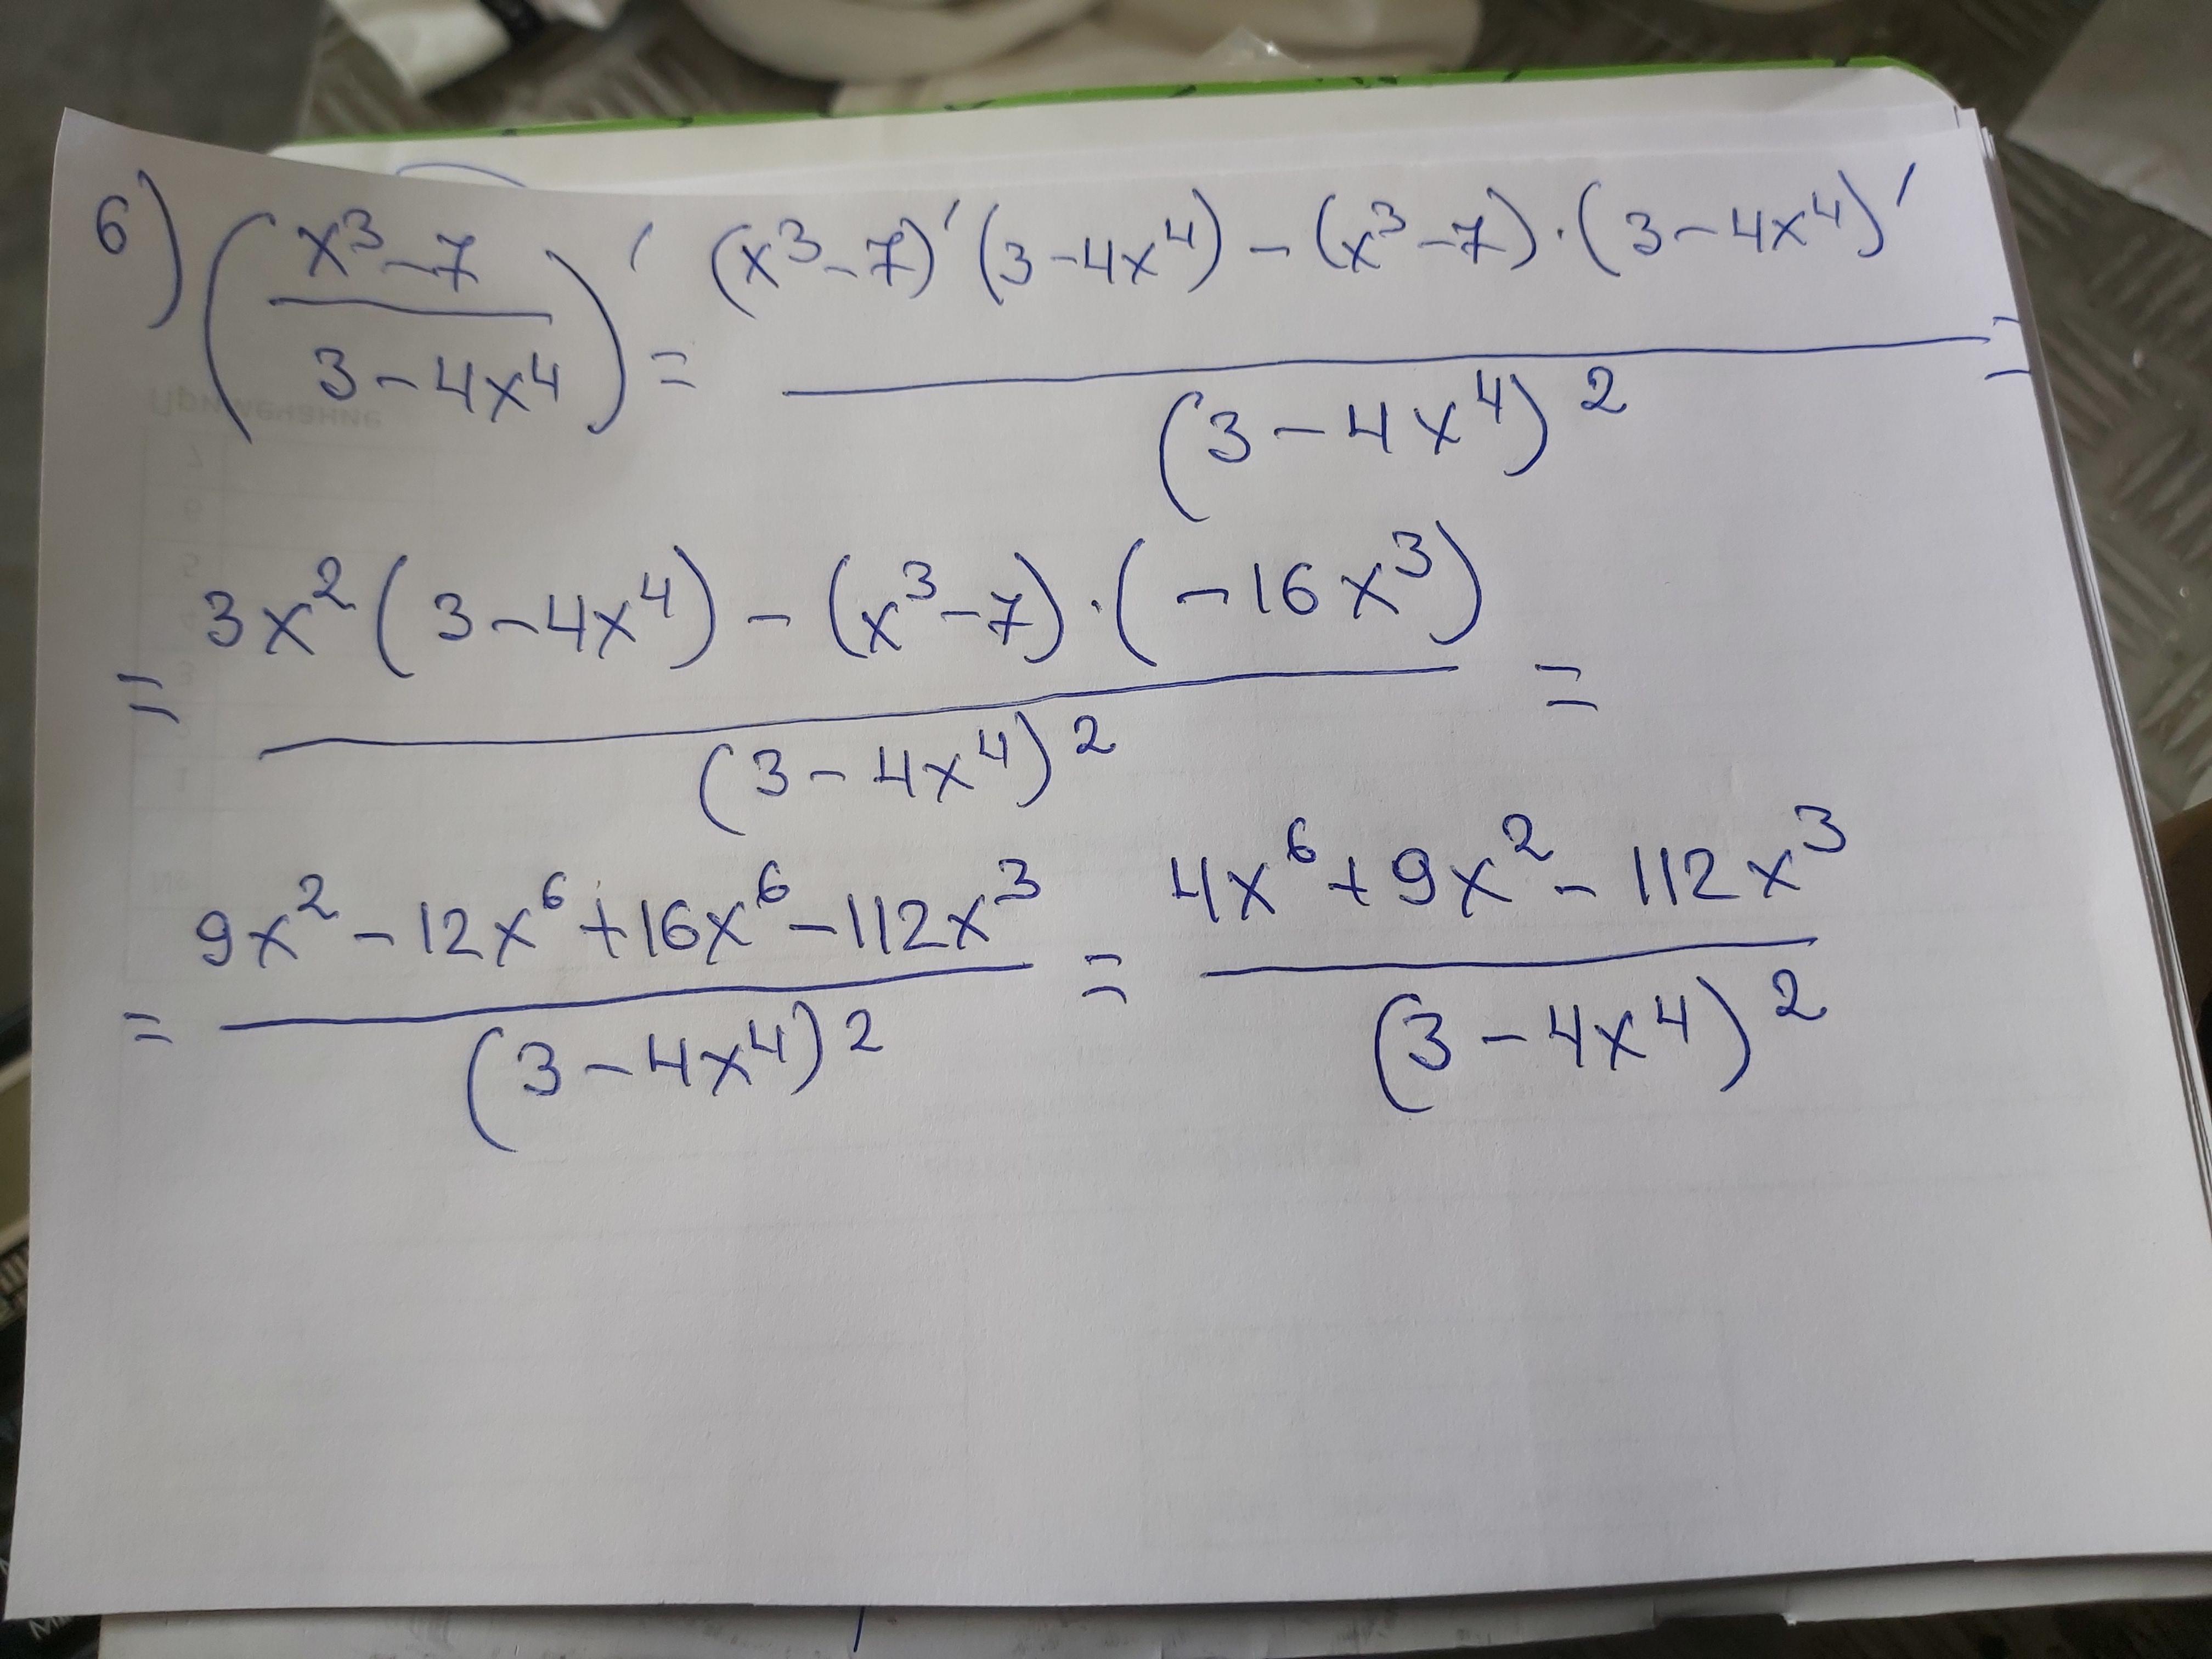 6) ((x³-7)/(3-4x⁴))′ = ((x³-7)′(3-4x⁴)-(x³-7)·(3-4x⁴)′)/(3-4x⁴)² =
= (3x²(3-4x⁴)-(x³-7)·(-16x³))/(3-4x⁴)² =
= (9x²-12x⁶+16x⁶-112x³)/(3-4x⁴)² = (4x⁶+9x²-112x³)/(3-4x⁴)²
Примечание